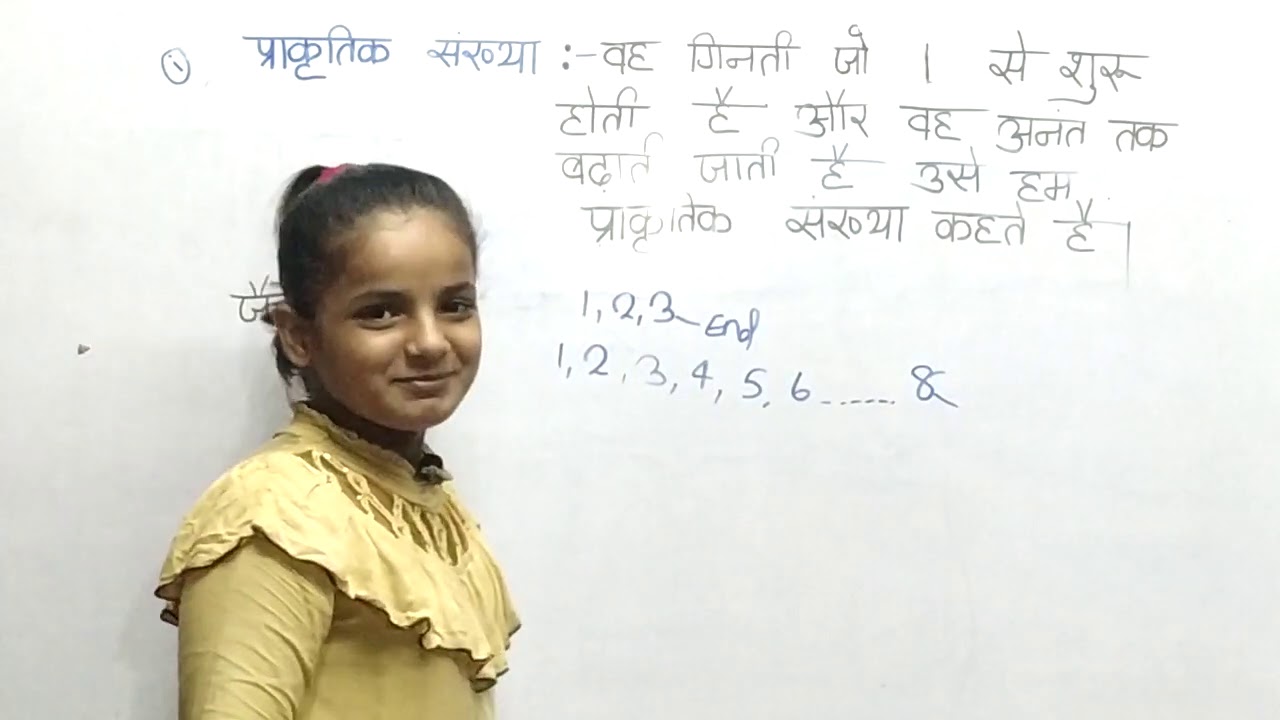 ① प्राकृतिक संख्या :- वह गिनती जो 1 से शुरू
होती है और वह अनंत तक
बढ़ाई जाती है उसे हम
प्राकृतिक संख्या कहते है।
1, 2, 3 End
1, 2, 3, 4, 5, 6 ......